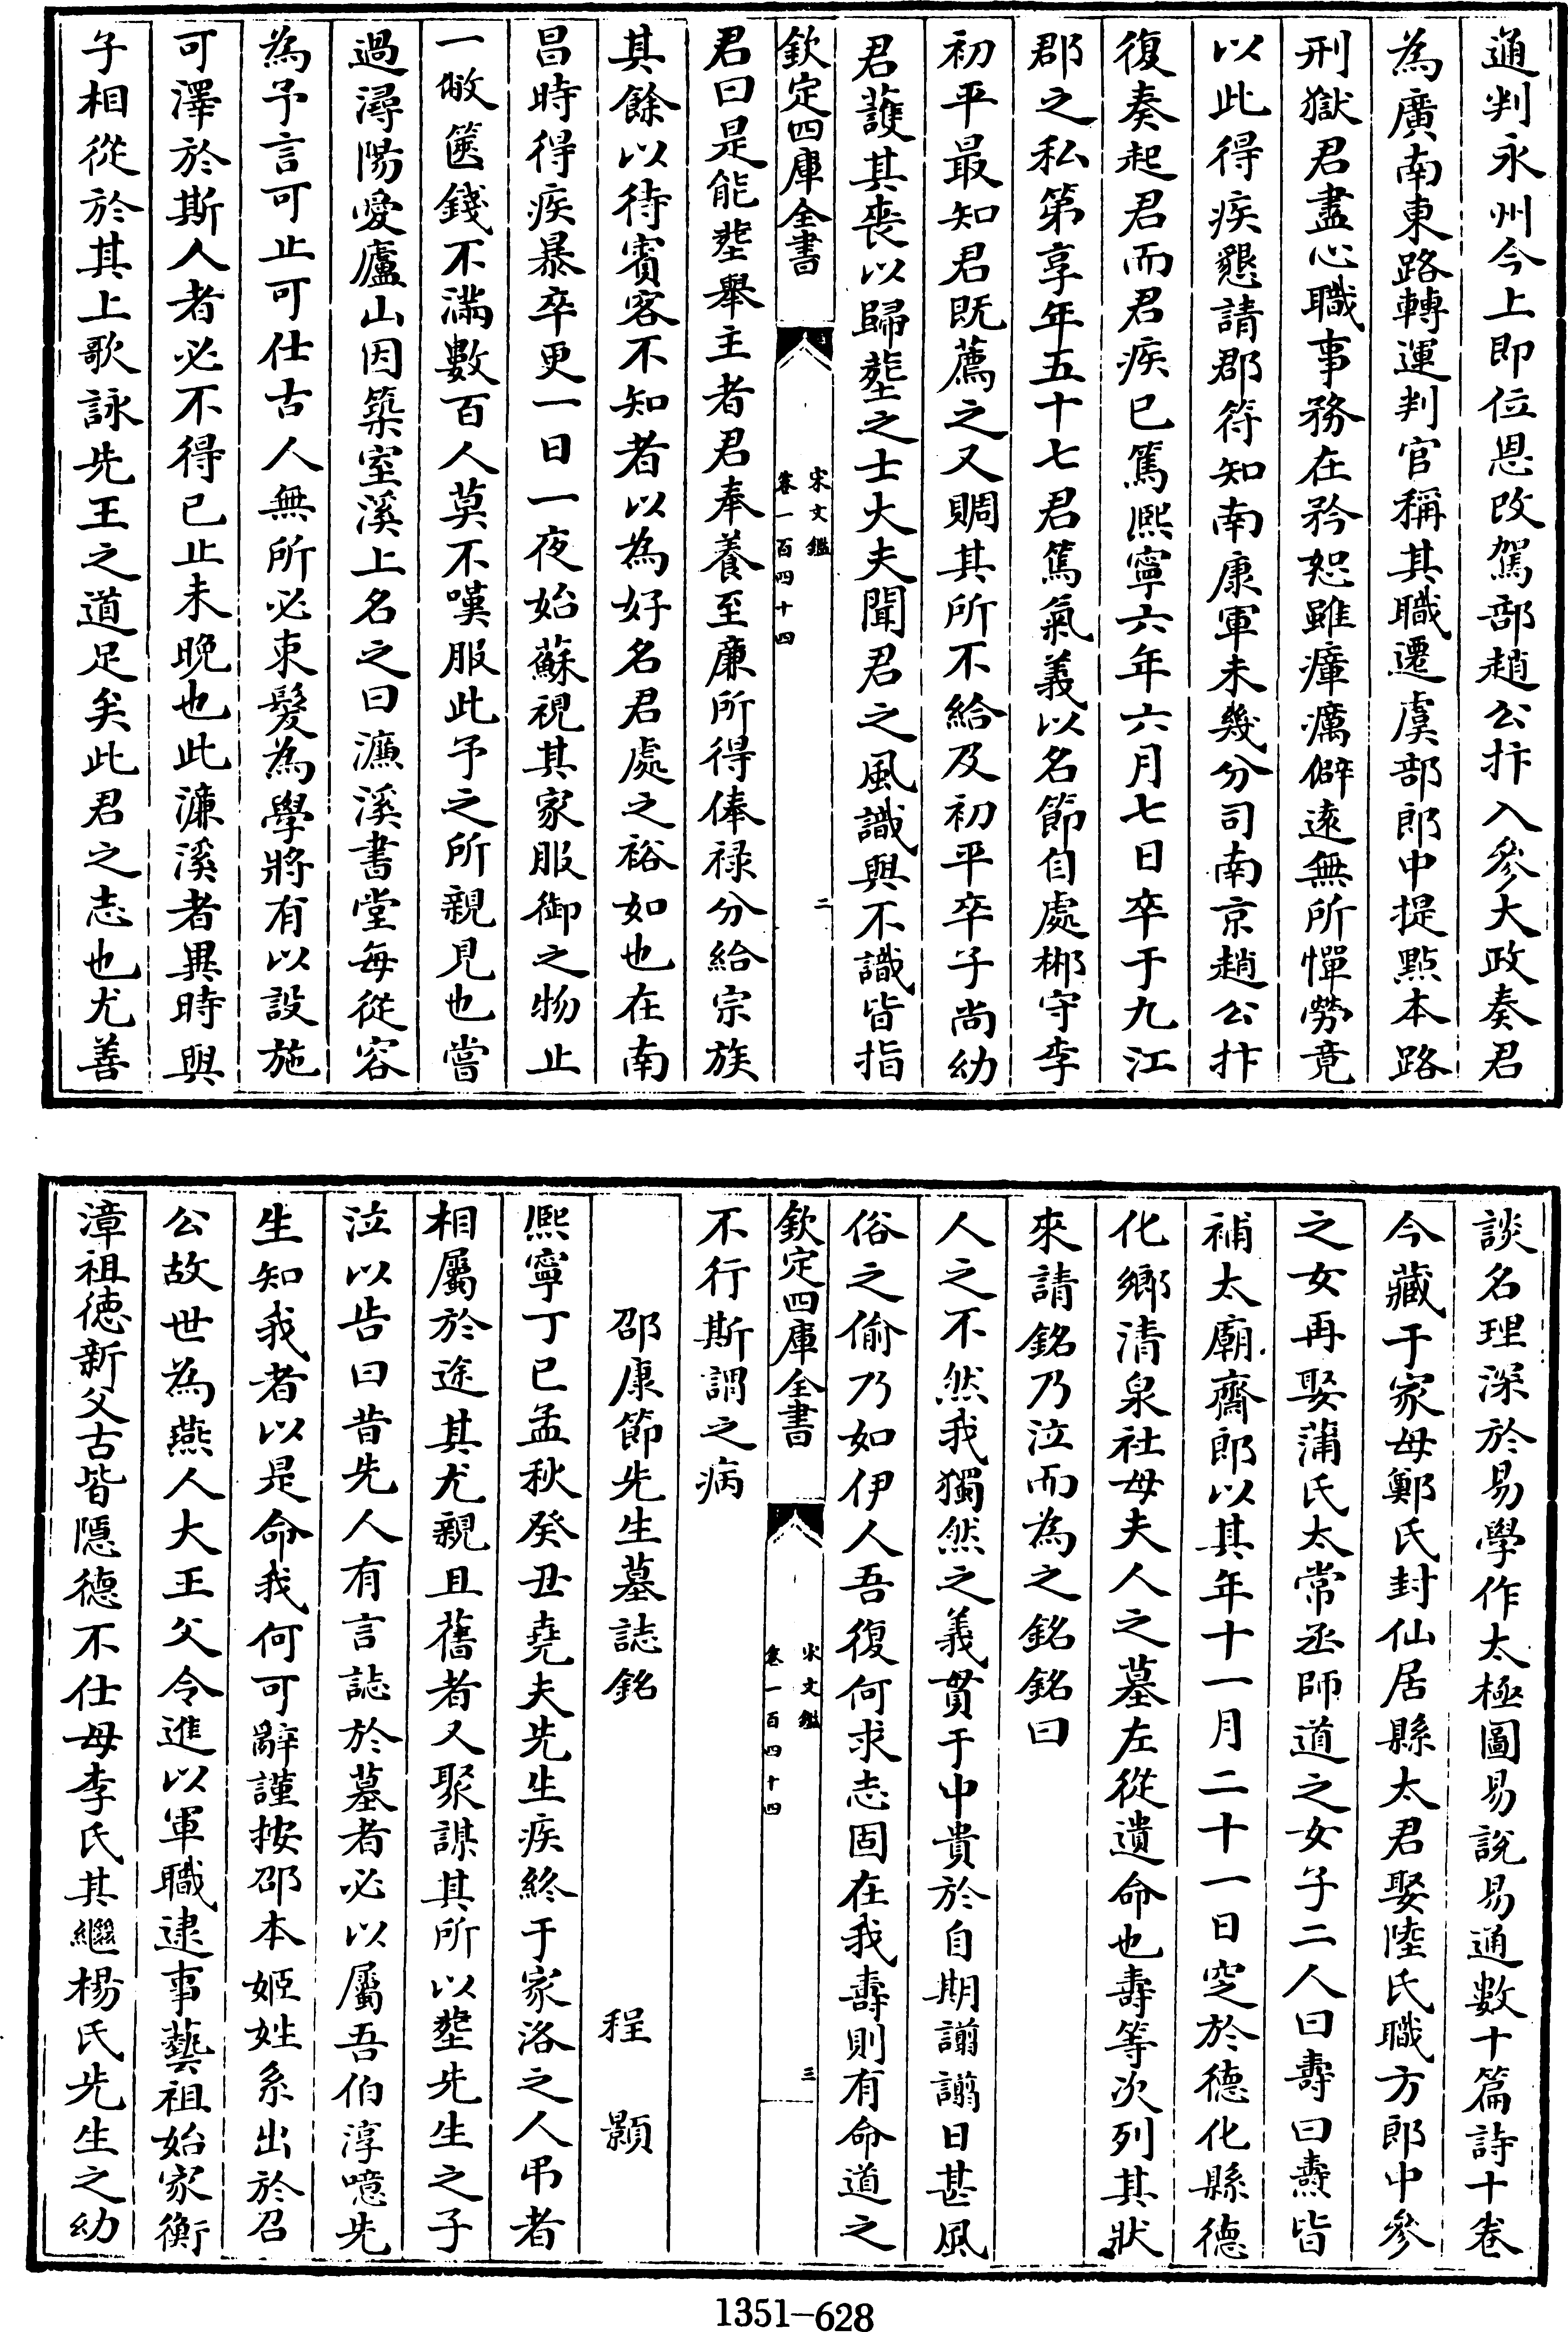 通判永州今上即位恩改駕部趙公抃入參大政奏君
為廣南東路轉運判官稱其職遷虞部郎中提點本路
刑獄君盡心職事務在矜恕雖瘴癘僻逺無所憚勞竟
以此得疾懇請郡符知南康軍未幾分司南京趙公抃
復奏起君而君疾已篤熈寧六年六月七日卒于九江
郡之私第享年五十七君篤氣義以名節自處郴守李
初平最知君既薦之又賙其所不給及初平卒子尚幼
君護其喪以歸塟之士大夫聞君之風識與不識皆指
欽定四庫全書
宋文鑑
卷一百四十四
二
君曰是能塟舉主者君奉養至廉所得俸禄分給宗族
其餘以待賓客不知者以為好名君處之裕如也在南
昌時得疾暴卒更一日一夜始蘇視其家服御之物止
一敝篋錢不滿數百人莫不嘆服此予之所親見也嘗
過潯陽愛廬山因築室溪上名之曰濂溪書堂每從容
為予言可止可仕古人無所必束髮為學將有以設施
可澤於斯人者必不得已止未晚也此濂溪者異時與
子相從於其上歌詠先王之道足矣此君之志也尤善
談名理深於易學作太極圖易說易通數十篇詩十卷
今藏于家母鄭氏封仙居縣太君娶陸氏職方郎中參
之女再娶蒲氏太常丞師道之女子二人曰壽曰燾皆
補太廟齋郎以其年十一月二十一日窆於德化縣德
化鄉清泉社母夫人之墓左從遺命也壽等次列其狀
來請銘乃泣而為之銘銘曰
人之不然我獨然之義貫于中貴於自期謭謭日甚風
俗之偷乃如伊人吾復何求志固在我壽則有命道之
欽定四庫全書
宋文鑑
卷一百四十四
三
不行斯謂之病
邵康節先生墓誌銘　程顥
熈寧丁巳孟秋癸丑堯夫先生疾終于家洛之人弔者
相屬於途其尤親且舊者又聚謀其所以塟先生之子
泣以告曰昔先人有言誌於墓者必以屬吾伯淳噫先
生知我者以是命我何可辭謹按邵本姬姓系出於召
公故世為燕人大王父令進以軍職逮事藝祖始家衡
漳祖徳新父古皆隱德不仕母李氏其繼楊氏先生之幼
1351-628